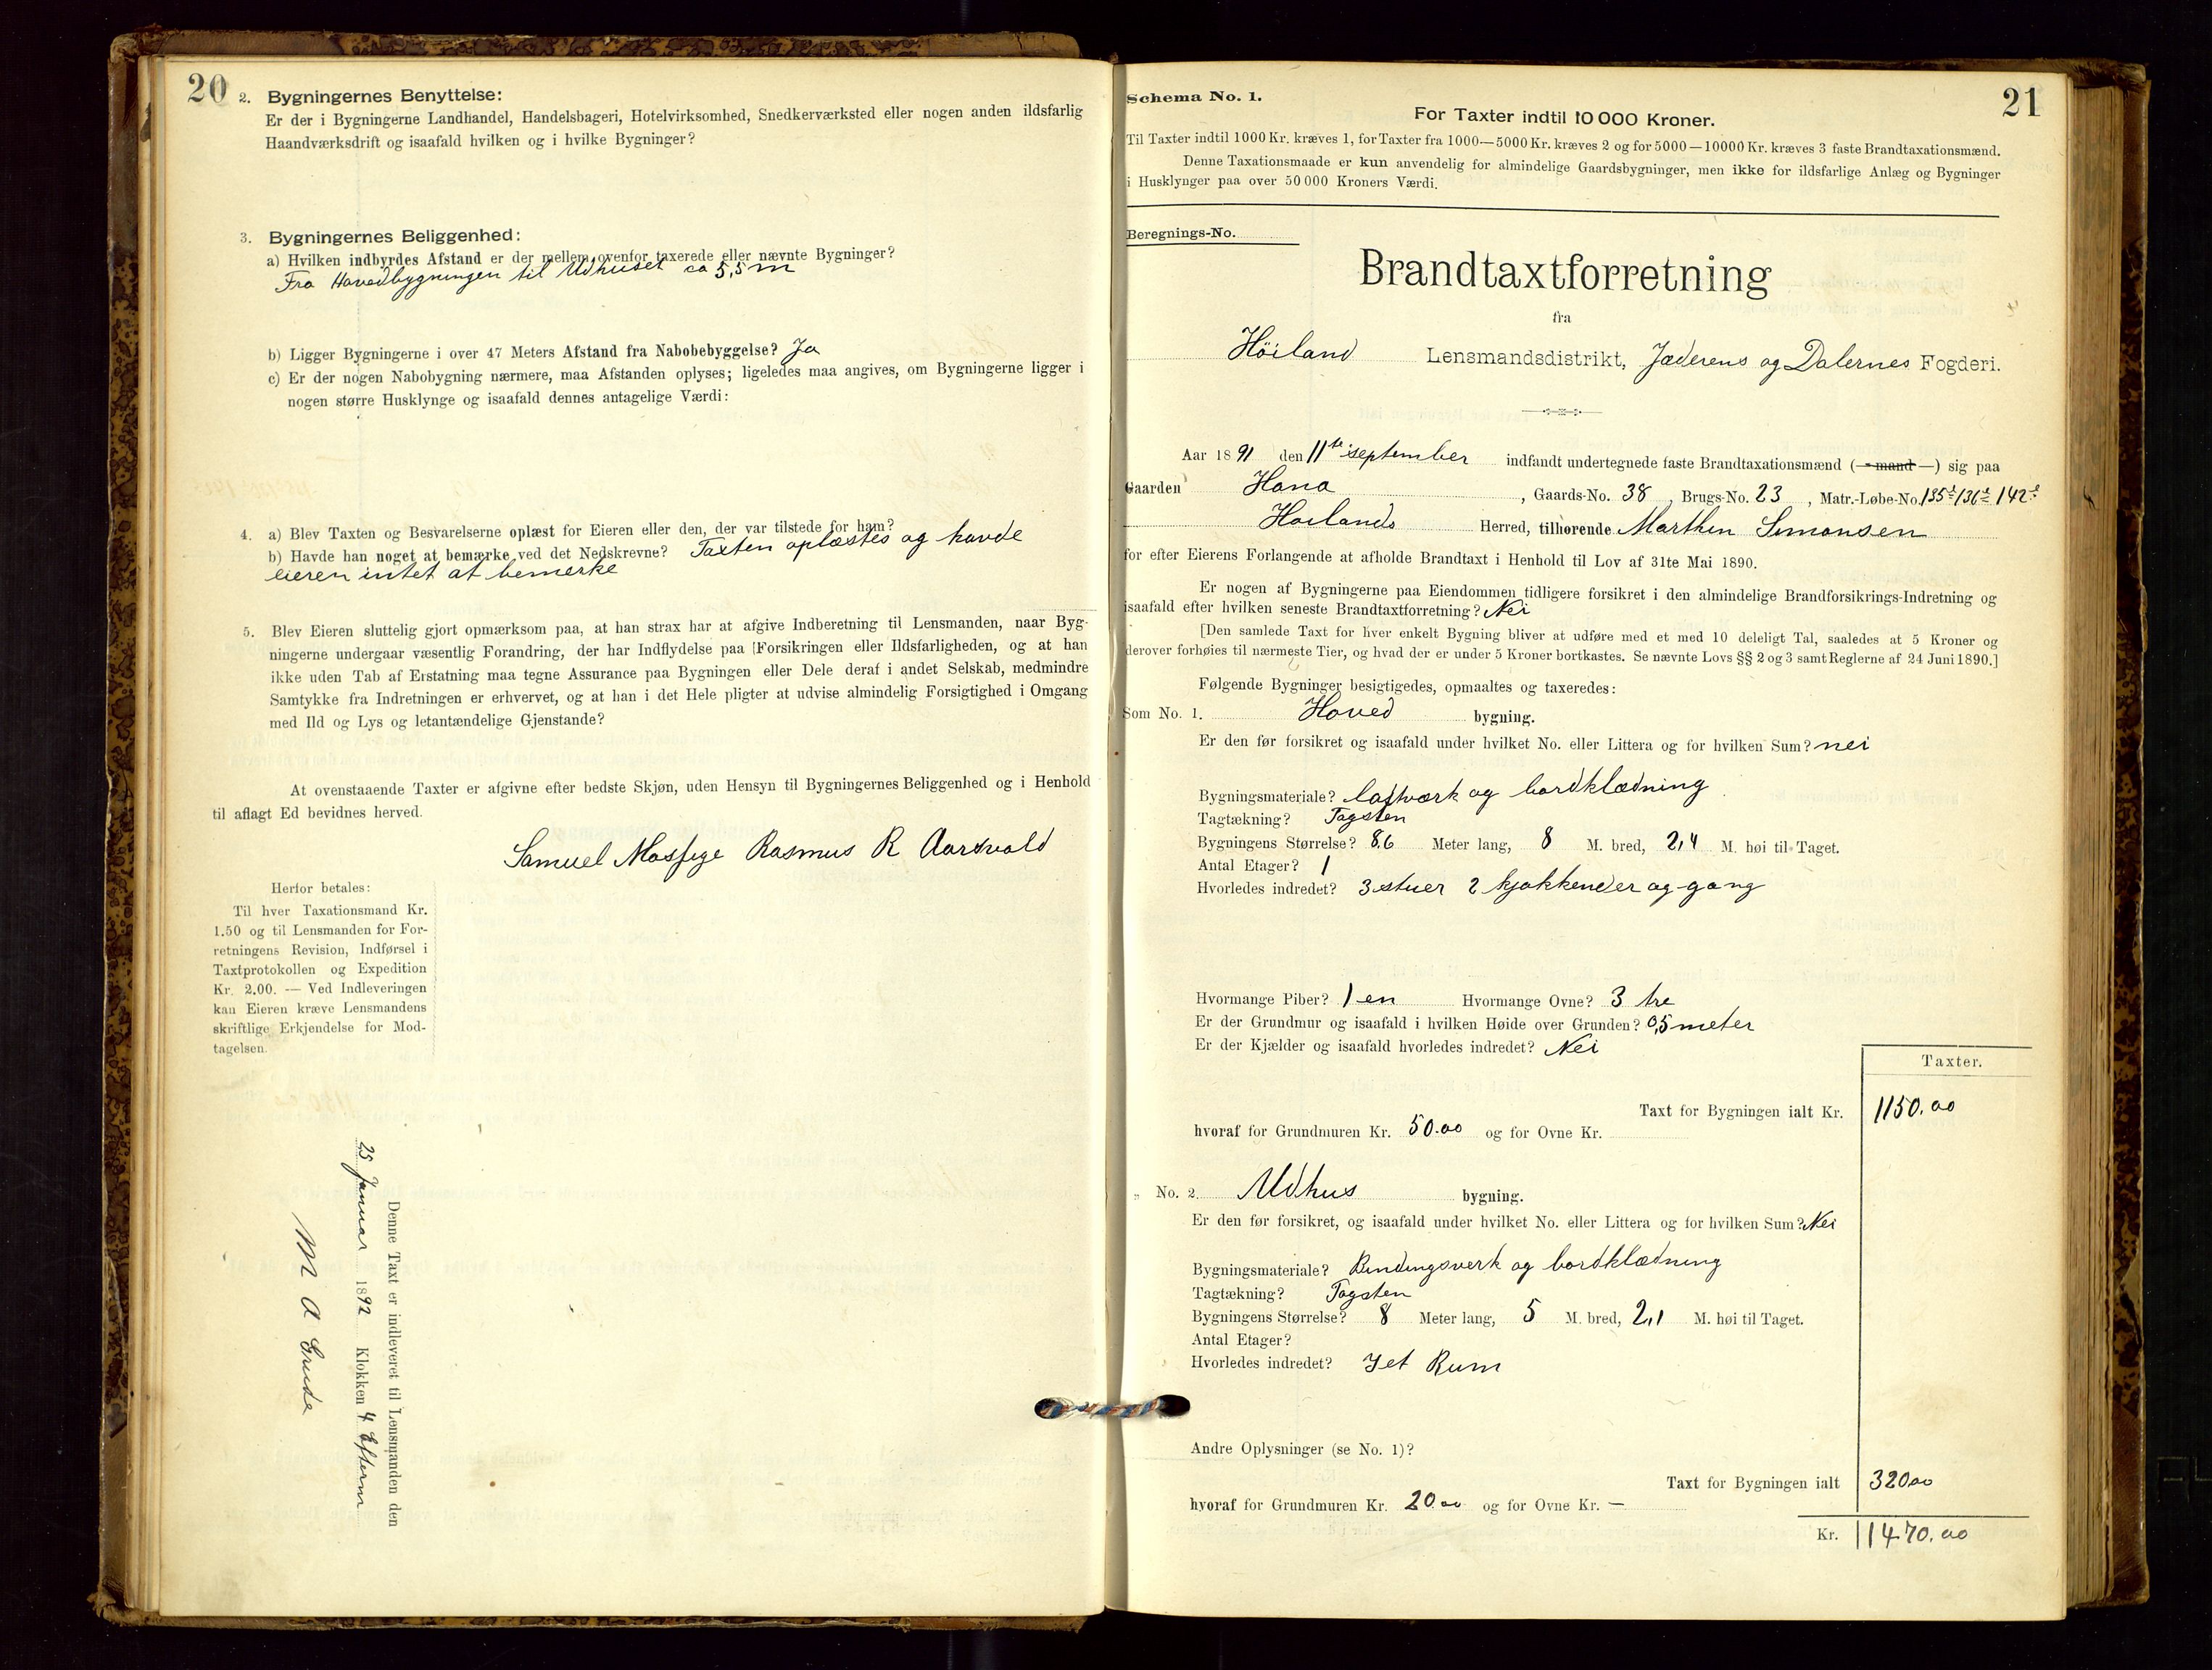 20
2. Bygningernes Benyttelse:
Er der i Bygningerne Landhandel, Handelsbageri, Hotelvirksomhed, Snedkerværksted eller nogen anden ildsfarlig
Haandværksdrift og isaafald hvilken og i hvilke Bygninger?
3. Bygningernes Beliggenhed:
a) Hvilken indbyrdes Afstand er der mellem ovenfor taxerede eller nævnte Bygninger?
Fra Hovedbygningen til Udhuset ca 5,5 m
b) Ligger Bygningerne i over 47 Meters Afstand fra Nabobebyggelse? Ja
c) Er der nogen Nabobygning nærmere, maa Afstanden oplyses; ligeledes maa angives, om Bygningerne ligger i
nogen større Husklynge og isaafald dennes antagelige Værdi:
4. a) Blev Taxten og Besvarelserne oplæst for Eieren eller den, der var tilstede for ham?
b) Havde han noget at bemærke ved det Nedskrevne? Taxten oplæstes og havde
eieren intet at bemerke
5. Blev Eieren sluttelig gjort opmærksom paa, at han strax har at afgive Indberetning til Lensmanden, naar Byg-
ningerne undergaar væsentlig Forandring, der har Indflydelse paa Forsikringen eller Ildsfarligheden, og at han
ikke uden Tab af Erstatning maa tegne Assurance paa Bygningen eller Dele deraf i andet Selskab, medmindre
Samtykke fra Indretningen er erhvervet, og at han i det Hele pligter at udvise almindelig Forsigtighed i Omgang
med Ild og Lys og letantændelige Gjenstande?
At ovenstaaende Taxter er afgivne efter bedste Skjøn, uden Hensyn til Bygningernes Beliggenhed og i Henhold
til aflagt Ed bevidnes herved.
Samuel Mossige Rasmus R Aarsvold
Herfor betales:
Til hver Taxationsmand Kr.
1.50 og til Lensmanden for For-
retningens Revision, Indførsel i
Taxtprotokollen og Expedition
Kr. 2.00. — Ved Indleveringen
kan Eieren kræve Lensmandens
skriftlige Erkjendelse for Mod-
tagelsen.
Denne Taxt er indleveret til Lensmanden den
25 Januar 1892 Klokken 4 Efterm
M A Grude
21
Schema No. 1.
For Taxter indtil 10 000 Kroner.
Til Taxter indtil 1000 Kr. kræves 1, for Taxter fra 1000—5000 Kr. kræves 2 og for 5000—10000 Kr. kræves 3 faste Brandtaxationsmænd.
Denne Taxationsmaade er kun anvendelig for almindelige Gaardsbygninger, men ikke for ildsfarlige Anlæg og Bygninger
i Husklynger paa over 50 000 Kroners Værdi.
Beregnings-No.
Brandtaxtforretning
fra
Höiland Lensmandsdistrikt, Jæderens og Dalernes Fogderi.
Aar 1891 den 11te september indfandt undertegnede faste Brandtaxationsmænd (—mand—) sig paa
Gaarden Hana, Gaards-No. 38, Brugs-No. 23, Matr.-Løbe-No. 135 136 142
Hoilands Herred, tilhørende Marthin Simonsen
for efter Eierens Forlangende at afholde Brandtaxt i Henhold til Lov af 31te Mai 1890.
Er nogen af Bygningerne paa Eiendommen tidligere forsikret i den almindelige Brandforsikrings-Indretning og
isaafald efter hvilken seneste Brandtaxtforretning? Nei
[Den samlede Taxt for hver enkelt Bygning bliver at udføre med et med 10 deleligt Tal, saaledes at 5 Kroner og
derover forhøies til nærmeste Tier, og hvad der er under 5 Kroner bortkastes. Se nævnte Lovs §§ 2 og 3 samt Reglerne af 24 Juni 1890.]
Følgende Bygninger besigtigedes, opmaaltes og taxeredes:
Som No. 1. Hoved bygning.
Er den før forsikret og isaafald under hvilket No. eller Littera og for hvilken Sum? nei
Bygningsmateriale? laftværk og bordklædning
Tagtækning? Tagsten
Bygningens Størrelse? 8,6 Meter lang, 8 M. bred, 2,4 M. høi til Taget.
Antal Etager? 1
Hvorledes indredet? 3 stuer 2 kjøkkender og gang
Hvormange Piber? 1 en Hvormange Ovne? 3 tre
Er der Grundmur og isaafald i hvilken Høide over Grunden? 0,5 meter
Er der Kjælder og isaafald hvorledes indredet? Nei
Taxter.
Taxt for Bygningen ialt Kr. 1150.00
hvoraf for Grundmuren Kr. 50.00 og for Ovne Kr.
„ No. 2. Udhus bygning.
Er den før forsikret, og isaafald under hvilket No. eller Littera og for hvilken Sum? Nei
Bygningsmateriale? Bindingsverk og bordklædning
Tagtækning? Tagsten
Bygningens Størrelse? 8 Meter lang, 5 M. bred, 2,1 M. høi til Taget.
Antal Etager?
Hvorledes indredet? Jet Rum
Andre Oplysninger (se No. 1)?
Taxt for Bygningen ialt 320.00
hvoraf for Grundmuren Kr. 20.00 og for Ovne Kr. —
Kr. 1470.00